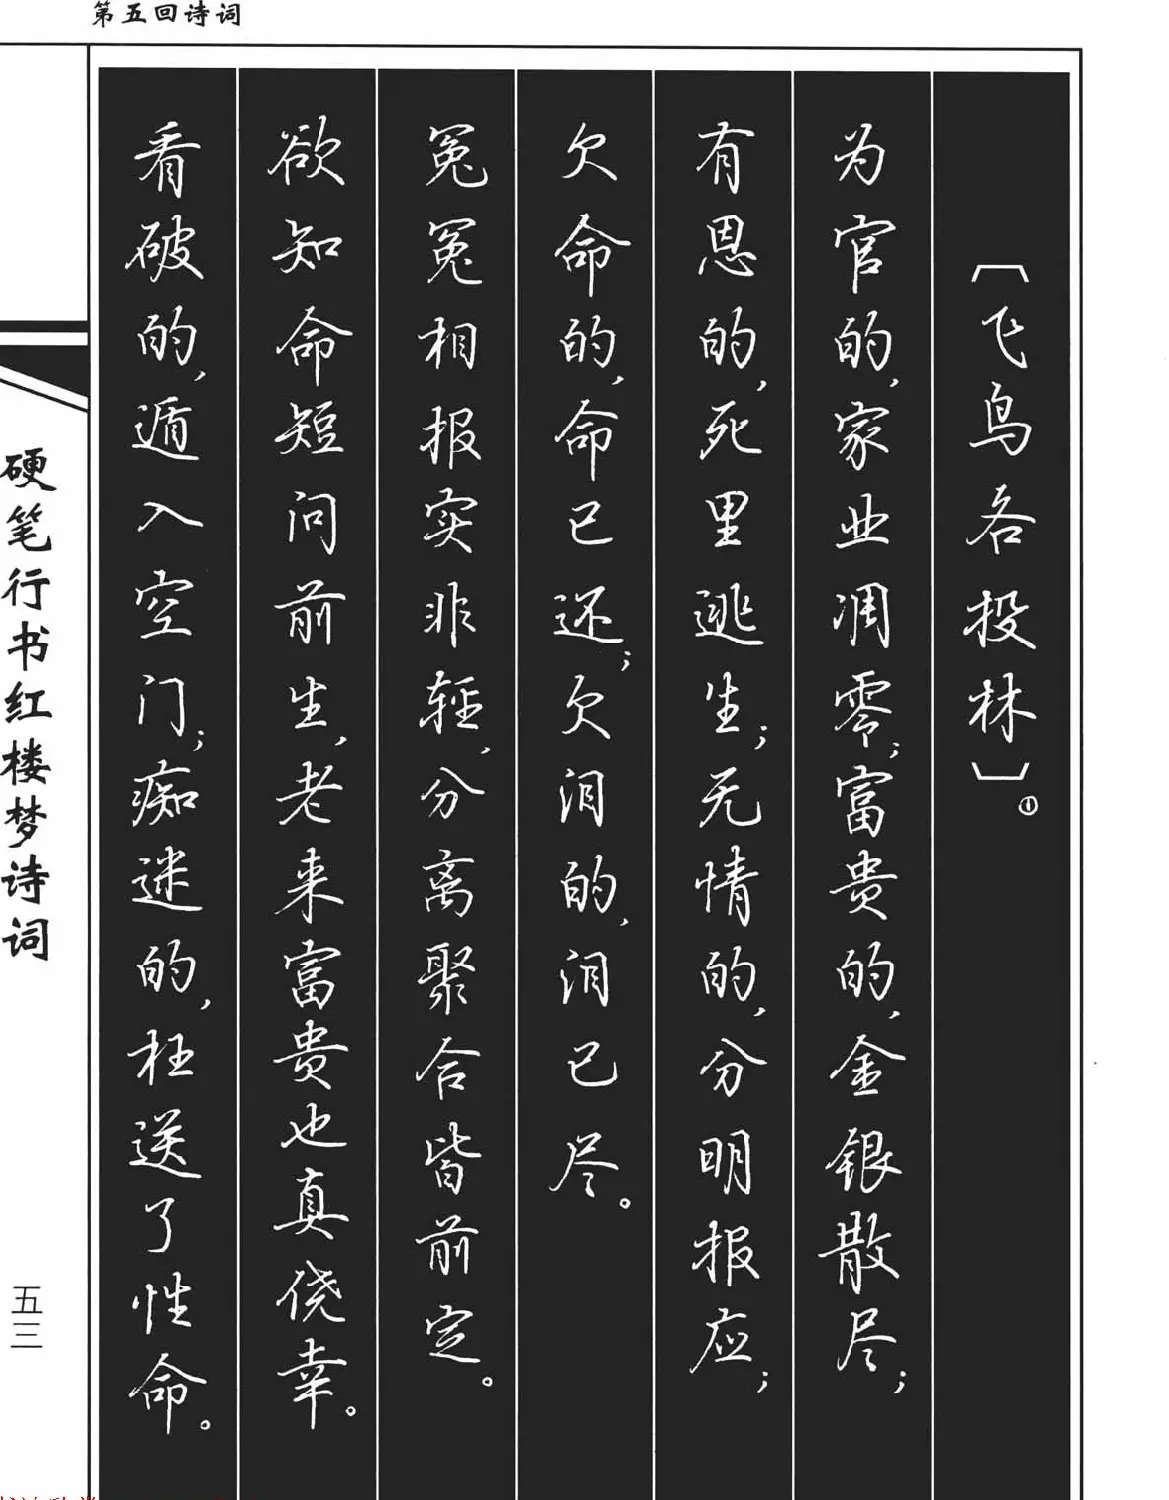 第五回诗词
〔飞鸟各投林〕①
为官的,家业凋零;富贵的,金银散尽;
有恩的,死里逃生;无情的,分明报应;
欠命的,命已还;欠泪的,泪已尽。
冤冤相报实非轻,分离聚合皆前定。
欲知命短问前生,老来富贵也真侥幸。
看破的,遁入空门;痴迷的,枉送了性命。
硬笔行书红楼梦诗词
五三